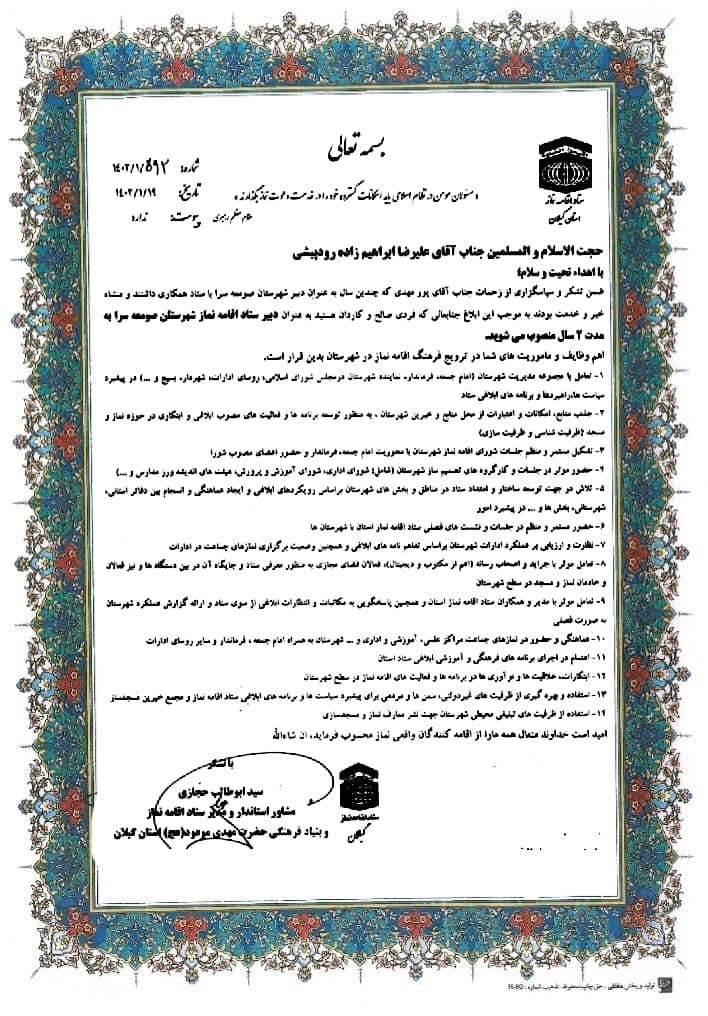 بسمه تعالی
شماره: ۱۴۰۲/۱/۵۹۲
تاریخ: ۱۴۰۲/۱/۱۹
پیوست: ندارد
«مسئولان مومن در نظام اسلامی باید امکانات گسترده خود را در خدمت دعوت نماز بگذارند»
مقام معظم رهبری
ستاد اقامه نماز
استان گیلان
حجت الاسلام و المسلمین جناب آقای علیرضا ابراهیم زاده رودپیشی
با اهداء تحیت و سلام؛
ضمن تشکر و سپاسگزاری از زحمات جناب آقای پور مهدی که چندین سال به عنوان دبیر شهرستان صومعه سرا با ستاد همکاری داشتند و منشاء
خیر و خدمت بودند به موجب این ابلاغ جنابعالی که فردی صالح و کاردان هستید به عنوان دبیر ستاد اقامه نماز شهرستان صومعه سرا به
مدت ۲ سال منصوب می شوید.
اهم وظایف و ماموریت های شما در ترویج فرهنگ اقامه نماز در شهرستان بدین قرار است.
۱- تعامل با مجموعه مدیریت شهرستان (امام جمعه، فرماندار، نماینده شهرستان درمجلس شورای اسلامی، روسای ادارات، شهردار، بسیج و ...) در پیشبرد
سیاست ها،راهبردها و برنامه های ابلاغی ستاد
۲- جذب منابع، امکانات و اعتبارات از محل منابع و خیرین شهرستان ، به منظور توسعه برنامه ها و فعالیت های مصوب ابلاغی و ابتکاری در حوزه نماز و
مسجد (ظرفیت شناسی و ظرفیت سازی)
۳- تشکیل مستمر و منظم جلسات شورای اقامه نماز شهرستان با محوریت امام جمعه، فرماندار و حضور اعضای مصوب شورا
۴- حضور موثر در جلسات و کارگروه های تصمیم ساز شهرستان (شامل؛ شورای اداری، شورای آموزش و پرورش، هیئت های اندیشه ورز مدارس و ...)
۵- تلاش در جهت توسعه ساختار و امتداد ستاد در مناطق و بخش های شهرستان براساس رویکردهای ابلاغی و ایجاد هماهنگی و انسجام بین دفاتر استانی،
شهرستانی، بخش ها و ... در پیشبرد امور
۶- حضور مستمر و منظم در جلسات و نشست های فصلی ستاد اقامه نماز استان با شهرستان ها
۷- نظارت و ارزیابی بر عملکرد ادارات شهرستان براساس تفاهم نامه های ابلاغی و همچنین وضعیت برگزاری نمازهای جماعت در ادارات
۸- تعامل موثر با جراید و اصحاب رسانه (اعم از مکتوب و دیجیتال)، فعالان فضای مجازی به منظور معرفی ستاد و جایگاه آن در بین دستگاه ها و نیز فعالان
و خادمان نماز و مسجد در سطح شهرستان
۹- تعامل موثر با مدیر و همکاران ستاد اقامه نماز استان و همچنین پاسخگویی به مکاتبات و انتظارات ابلاغی از سوی ستاد و ارائه گزارش عملکرد شهرستان
به صورت فصلی
۱۰- هماهنگی و حضور در نمازهای جماعت مراکز علمی، آموزشی و اداری و ... شهرستان به همراه امام جمعه ، فرماندار و سایر روسای ادارات
۱۱- اهتمام در اجرای برنامه های فرهنگی و آموزشی ابلاغی ستاد استان
۱۲- ابتکارات، خلاقیت ها و نوآوری ها در برنامه ها و فعالیت های اقامه نماز در سطح شهرستان
۱۳- استفاده و بهره گیری از ظرفیت های غیردولتی، سمن ها و مردمی برای پیشبرد سیاست ها و برنامه های ابلاغی ستاد اقامه نماز و مجمع خیرین مسجدساز
۱۴- استفاده از ظرفیت های تبلیغی محیطی شهرستان جهت نشر معارف نماز و مسجدسازی
امید است خداوند متعال همه ما را از اقامه کنندگان واقعی نماز محسوب فرماید، ان شاءالله
با تشکر
سید ابوطالب حجازی
مشاور استاندار و مدیر ستاد اقامه نماز
و بنیاد فرهنگی حضرت مهدی موعود(عج) استان گیلان
ستاد اقامه نماز
گیلان
تولید و پخش حفظی ، حق چاپ محفوظ. تذهیب شماره : H-80